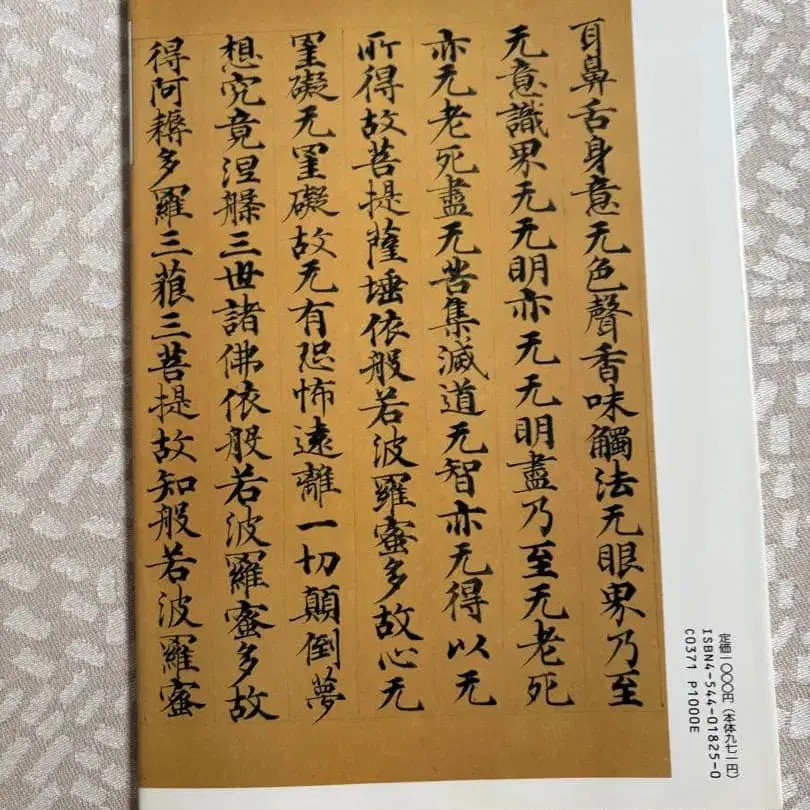 耳鼻舌身意无色聲香味觸法无眼界乃至
无意識界无无明亦无无明盡乃至无老死
亦无老死盡无苦集滅道无智亦无得以无
所得故菩提薩埵依般若波羅蜜多故心无
罣礙无罣礙故无有恐怖遠離一切顛倒夢
想究竟涅槃三世諸佛依般若波羅蜜多故
得阿耨多羅三藐三菩提故知般若波羅蜜
定価一〇〇〇円（本体九七一円）
ISBN4-544-01825-0
C0371 P1000E